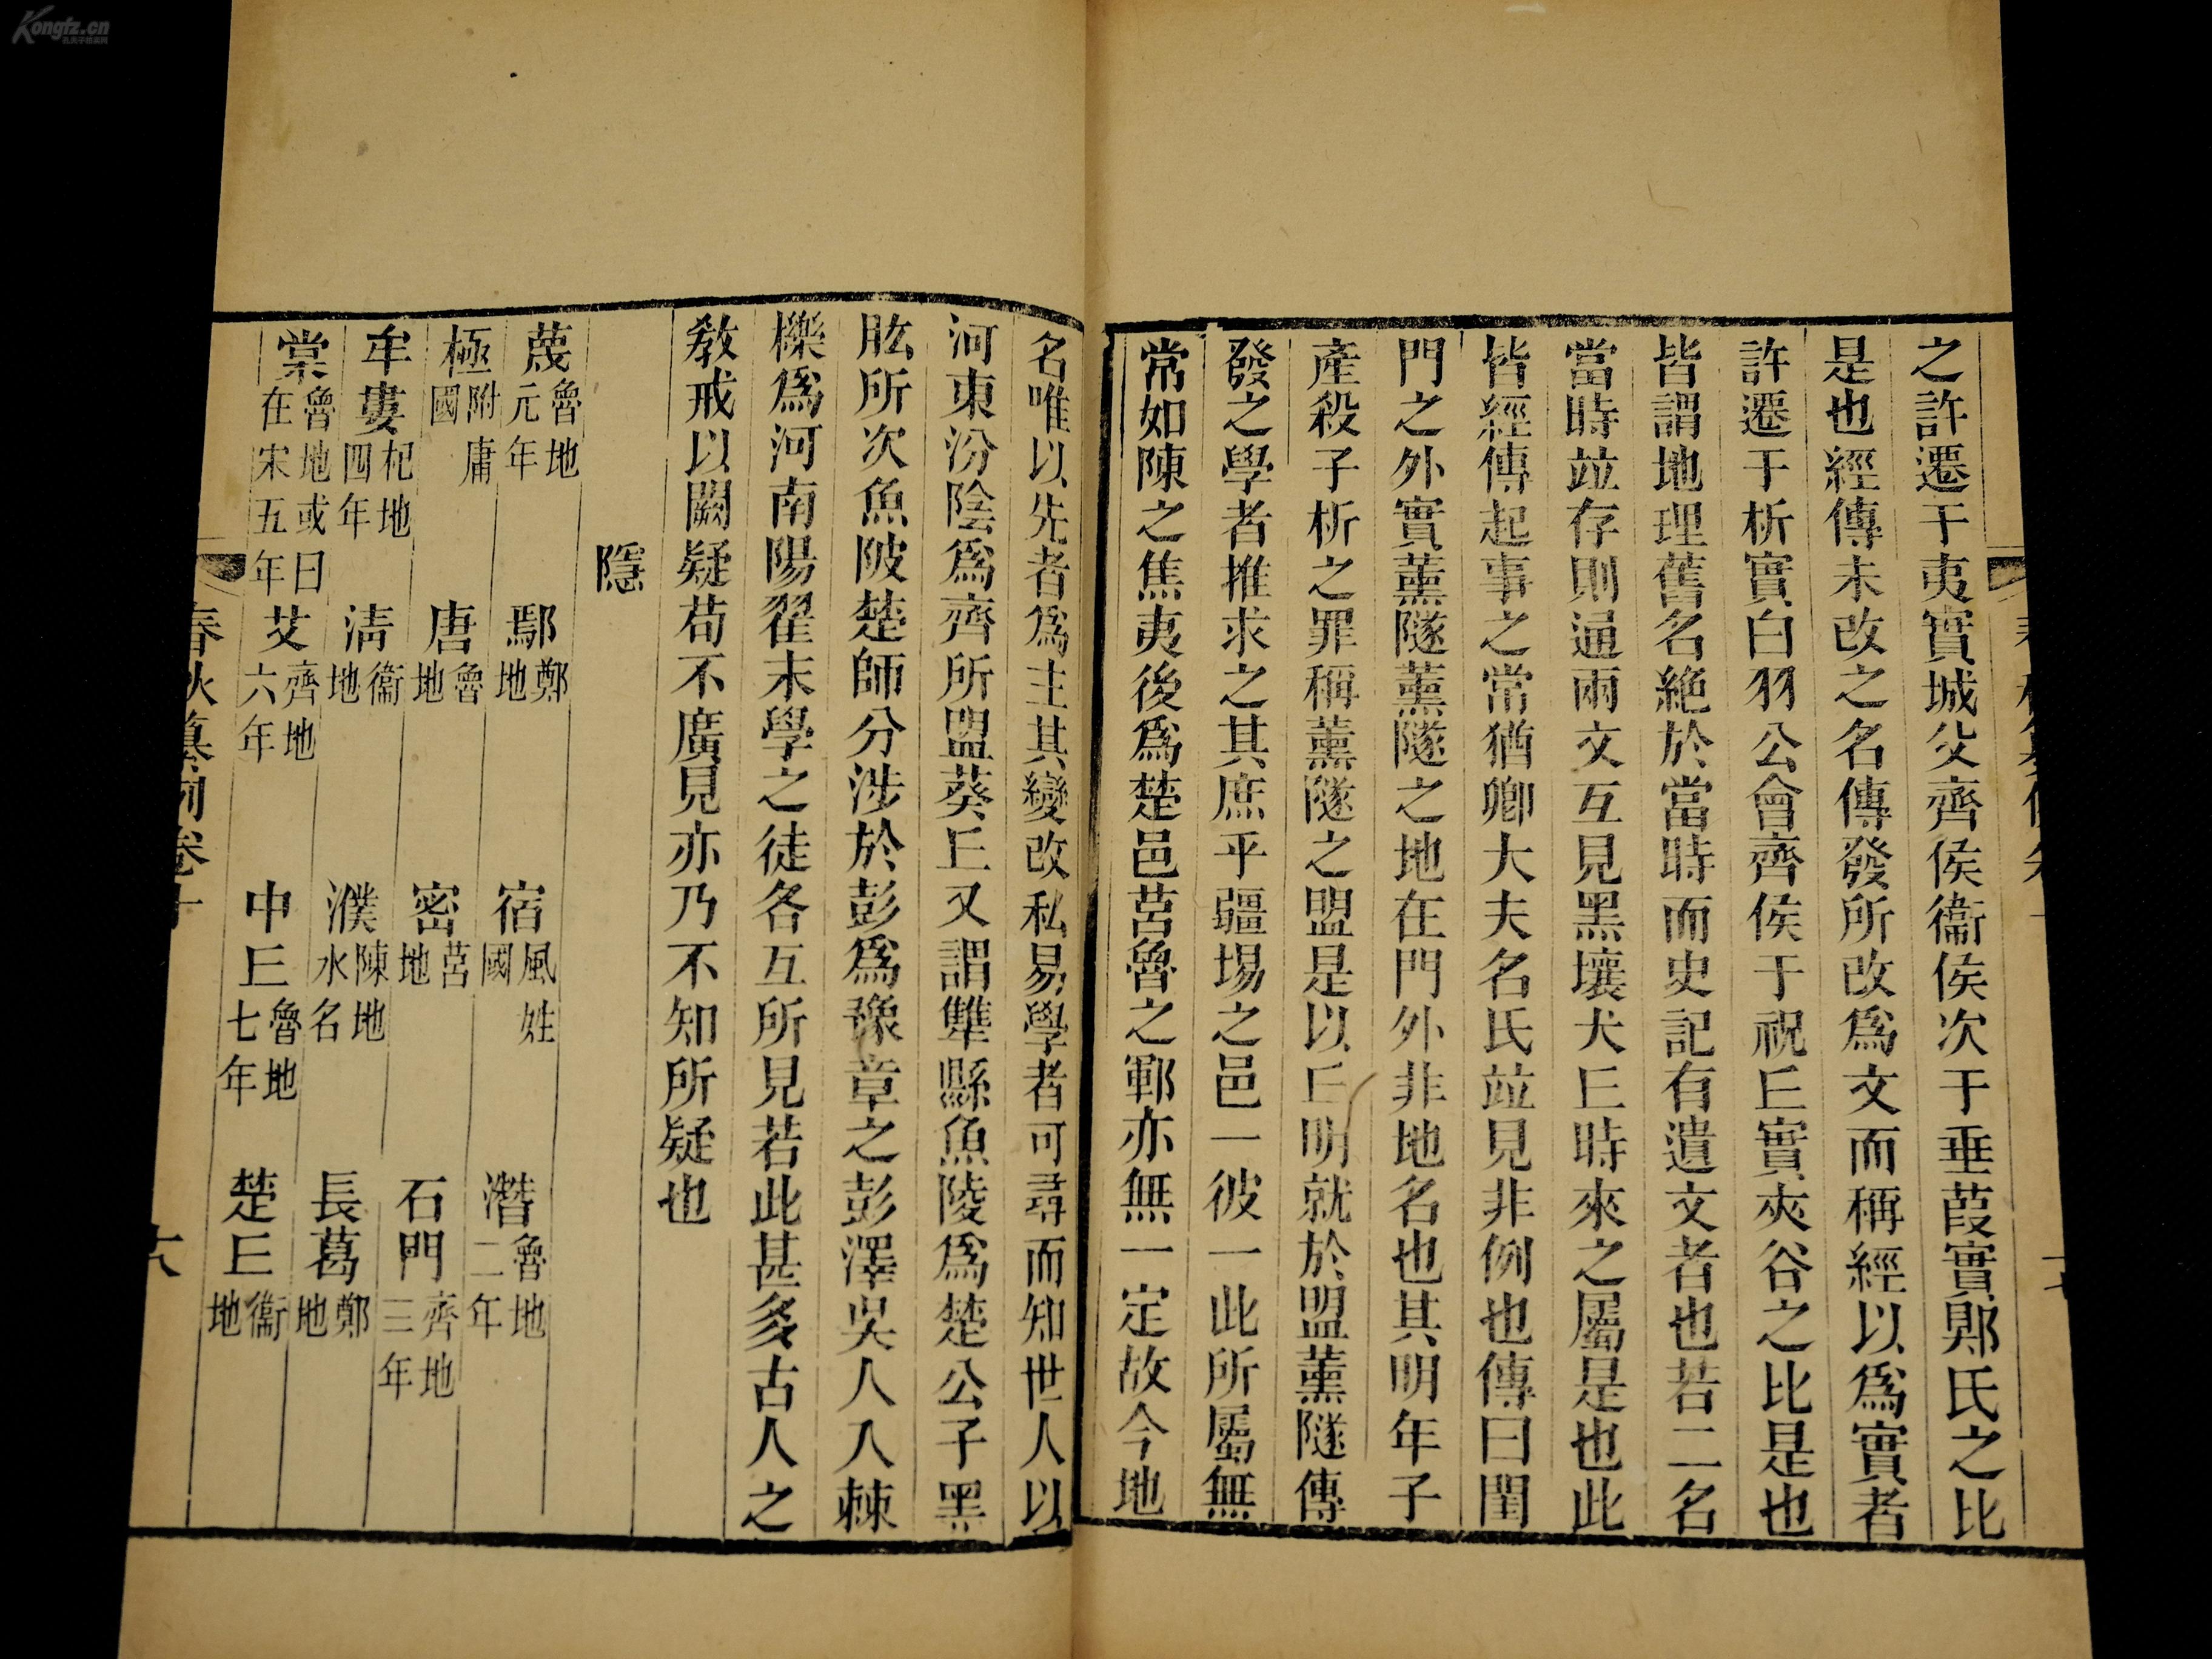 之許遷于夷實城父齊侯衞侯次于垂葭實郹氏之比
是也經傳未改之名傳發所改爲文而稱經以爲實者
許遷于析實白羽公會齊侯于祝𠀉實夾谷之比是也
皆謂地理舊名絶於當時而史記有遺文者也若二名
當時竝存則逼兩文互見黑壤犬𠀉時來之屬是也此
皆經傳起事之常猶卿大夫名氏竝見非例也傳曰閨
門之外實薰隧薰隧之地在門外非地名也其明年子
產殺子析之罪稱薰隧之盟是以𠀉明就於盟薰隧傳
發之學者推求之其庶乎疆埸之邑一彼一此所屬無
常如陳之焦夷後爲楚邑莒魯之鄆亦無一定故今地
名唯以先者爲主其變改私易學者可尋而知世人以
河東汾陰爲齊所盟葵𠀉又謂雔縣魚陵爲楚公子黑
肱所次魚陂楚師分涉於彭爲豫章之彭澤吳人入棘
櫟爲河南陽翟末學之徒各互所見若此甚多古人之
敎戒以闕疑苟不廣見亦乃不知所疑也
隱
蔑魯地元年 鄢鄭地 宿風姓國 潛魯地二年
極附庸國 唐魯地 密莒地 石門齊地三年
牟婁杞地四年 淸衞地 濮陳地水名 長葛鄭地
棠魯地或曰在宋五年 艾齊地六年 中𠀉魯地七年 楚𠀉衞地
春秋纂例卷十
六
Kongfz.cn